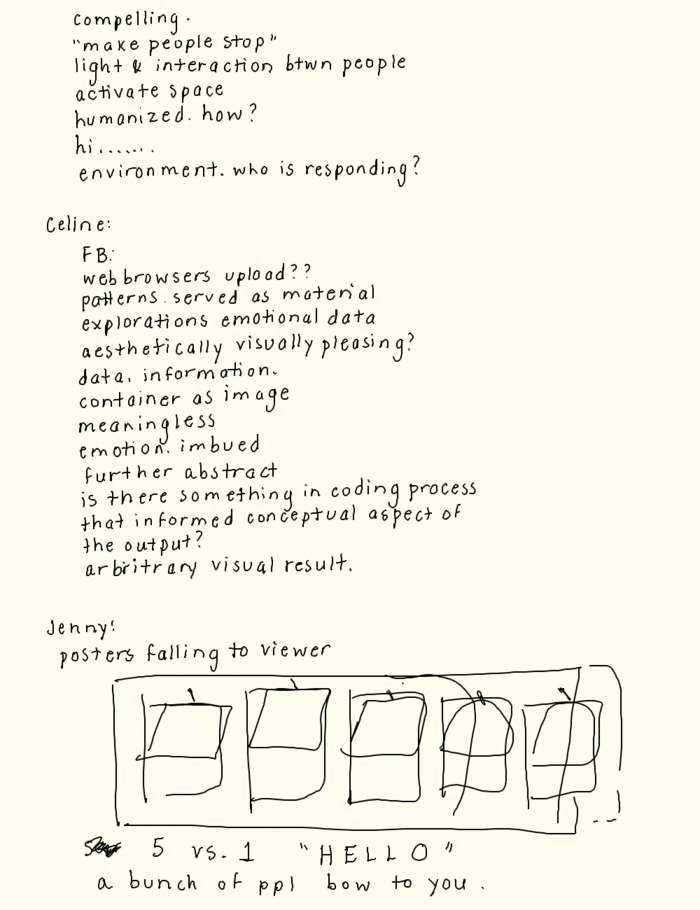 compelling.
"make people stop"
light & interaction btwn people
activate space
humanized. how?
hi......
environment. who is responding?
Celine:
FB:
web browsers upload??
patterns. served as material
explorations emotional data
aesthetically visually pleasing?
data, information.
container as image
meaningless
emotion. imbued
further abstract
is there something in coding process
that informed conceptual aspect of
the output?
arbritrary visual result.
Jenny:
posters falling to viewer
5 vs. 1 "HELLO"
a bunch of ppl bow to you.